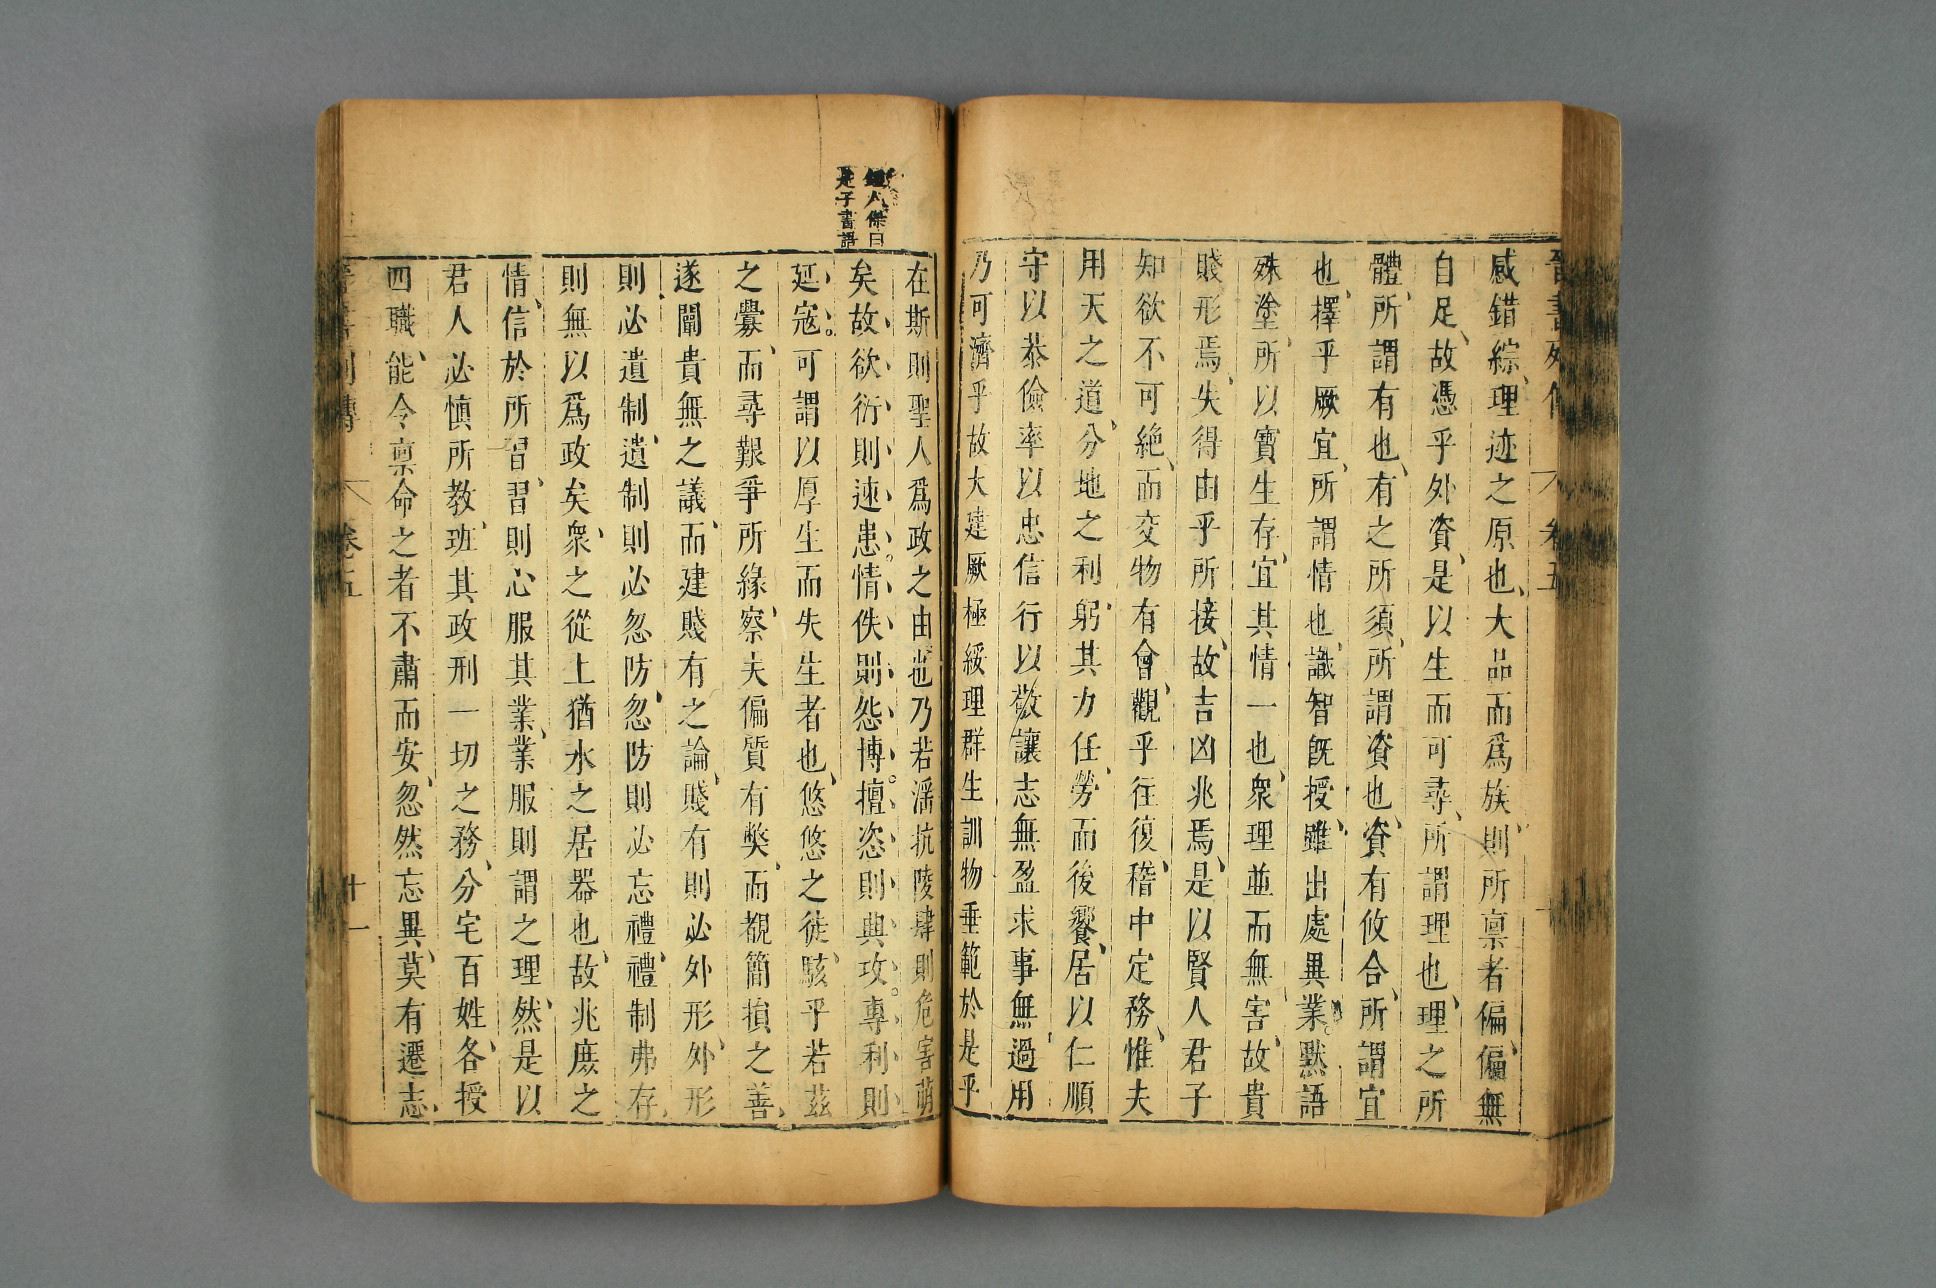 感錯綜理迹之原也大品而爲族則所禀者偏偏無
自足故憑乎外資是以生而可尋所謂理也理之所
體所謂有也有之所須所謂資也資有攸合所謂宜
也擇乎厥宜所謂情也識智旣授雖出處異業默語
殊塗所以寶生存宜其情一也衆理並而無害故貴
賤形焉失得由乎所接故吉凶兆焉是以賢人君子
知欲不可絶而交物有會觀乎往復稽中定務惟夫
用天之道分地之利躬其力任勞而後饗居以仁順
守以恭儉率以忠信行以敬讓志無盈求事無過用
乃可濟乎故大建厥極綏理群生訓物垂範於是乎
鍾人傑曰
是子書語
在斯則聖人爲政之由也乃若淫抗陵肆則危害萌
矣故欲衍則速患情佚則怨博擅恣則興攻專利則
延寇可謂以厚生而失生者也悠悠之徒駭乎若茲
之釁而尋艱爭所緣察夫偏質有弊而覩簡損之善
遂闡貴無之議而建賤有之論賤有則必外形外形
則必遺制遺制則必忽防忽防則必忘禮禮制弗存
則無以爲政矣衆之從上猶水之居器也故兆庶之
情信於所習習則心服其業業服則謂之理然是以
君人必慎所教班其政刑一切之務分宅百姓各授
四職能令禀命之者不肅而安忽然忘異莫有遷志
晉書列傳 卷之五 十一